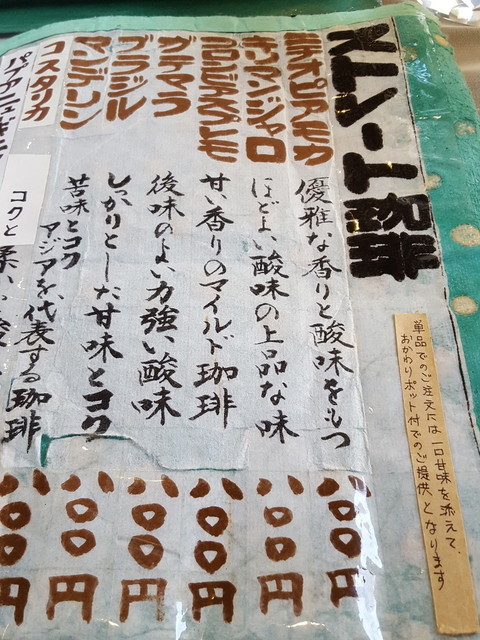 単品でのご注文には一口甘味を添えて、
おかわりポット付でのご提供となります
ストレート珈琲
エチオピアモカ 優雅な香りと酸味をもつ 八〇〇円
キリマンジャロ ほどよい酸味の上品な味 八〇〇円
コロンビアスプレモ 甘い香りのマイルド珈琲 八〇〇円
ガテマラ 後味のよい力強い酸味 八〇〇円
ブラジル しっかりとした甘味とコク 八〇〇円
マンデリン 苦味とコク
アジアを代表する珈琲 八〇〇円
コスタリカ
コクと
パプアニ